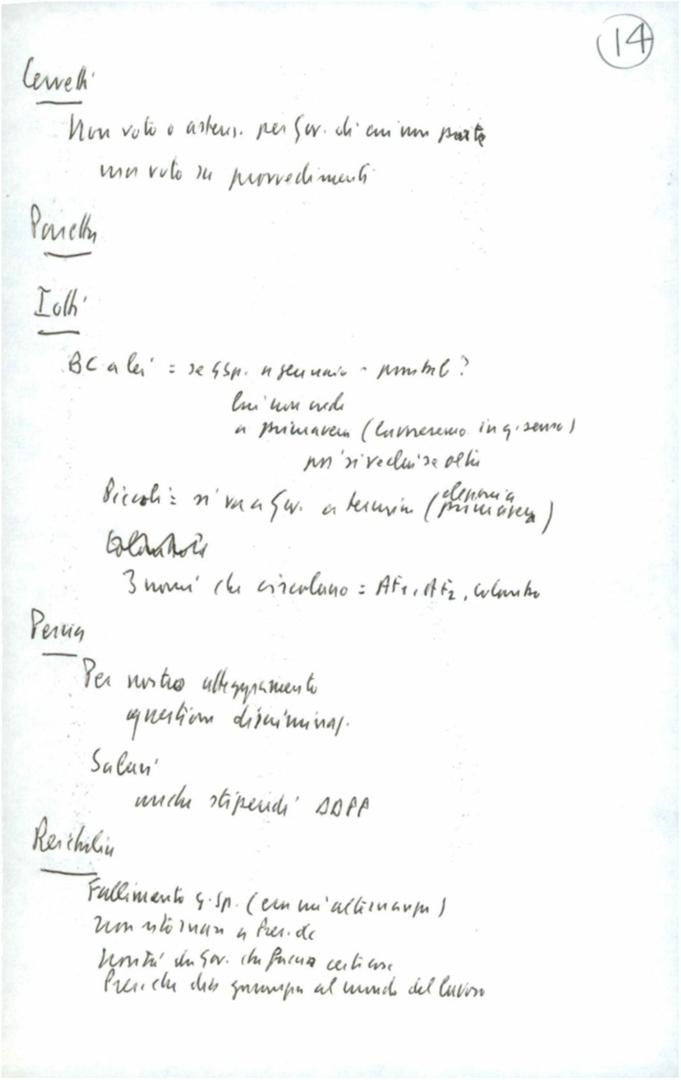 14
Cervetti
Non voto o astens. per Gov. di cui non parte
ma voto su provvedimenti
Iotti
BC a lei = se GSp. a gennaio - possibil?
lui non vede
a primavera (lavoreremo in q. senso)
poi si vedrà se altri
Piccoli = si va a Gov. a termine (elezioni a primavera)
3 nomi che circolano = AF1, AF2, Colombo
Perna
Per nostro atteggiamento
question discriminaz.
Salari
anche stipendi DDPP
Reichlin
Fallimento g. Sp. (era un'alternativa)
non ritornare a Pres. dc
Novità un Gov. che faccia certe cose
Pres. che dia garanzia al mondo del lavoro